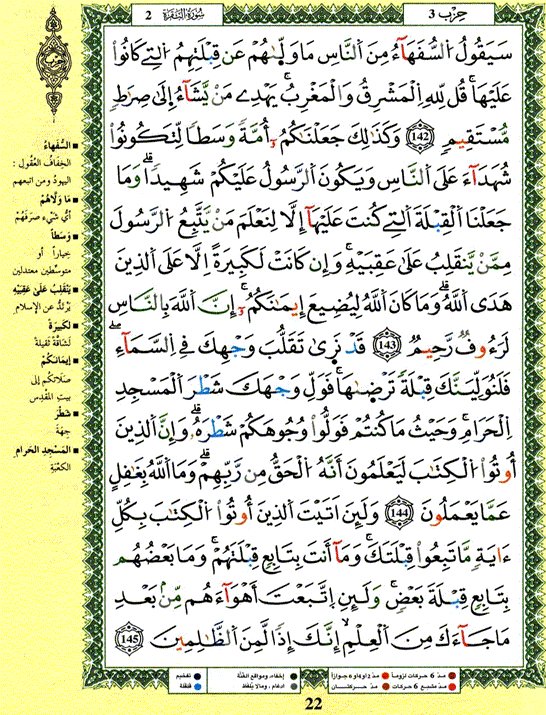 حِزْب 3
سُورَةُ البَقَرَة 2
سَيَقُولُ اُ۬لسُّفَهَآءُ مِنَ اَ۬لنَّاسِ مَا وَلّ۪يٰهُمْ عَن قِبْلَتِهِمُ اُ۬لتِے كَانُواْ
عَلَيْهَاۖ قُل لِّلهِ اِ۬لْمَشْرِقُ وَالْمَغْرِبُۖ يَهْدِے مَنْ يَّشَآءُ اِ۪لَىٰ صِرَٰطٖ
مُّسْتَقِيمٖ 142 وَكَذَٰلِكَ جَعَلْنَٰكُمُۥٓ أُمَّةٗ وَسَطاٗ لِّتَكُونُواْ
شُهَدَآءَ عَلَى اَ۬لنَّاسِ وَيَكُونَ اَ۬لرَّسُولُ عَلَيْكُمْ شَهِيداٗۖ وَمَا
جَعَلْنَا اَ۬لْقِبْلَةَ اَ۬لتِے كُنتَ عَلَيْهَآ إِلَّا لِنَعْلَمَ مَنْ يَّتَّبِعُ اُ۬لرَّسُولَ
مِمَّنْ يَّنقَلِبُ عَلَىٰ عَقِبَيْهِۖ وَإِن كَانَتْ لَكَبِيرَةً اِلَّا عَلَى اَ۬لذِينَ
هَدَى اَ۬للَّهُۖ وَمَا كَانَ اَ۬للَّهُ لِيُضِيعَ إِيمَٰنَكُمُۥٓۖ إِنَّ اَ۬للَّهَ بِالنَّاسِ
لَرَءُوفٞ رَّحِيمٞ 143 قَدْ نَر۪ىٰ تَقَلُّبَ وَجْهِكَ فِے اِ۬لسَّمَآءِۖ
فَلَنُوَلِّيَنَّكَ قِبْلَةٗ تَرْض۪يٰهَاۖ فَوَلِّ وَجْهَكَ شَطْرَ اَ۬لْمَسْجِدِ
اِ۬لْحَرَامِۖ وَحَيْثُ مَا كُنتُمْ فَوَلُّواْ وُجُوهَكُمْ شَطْرَهُۥۖ وَإِنَّ اَ۬لذِينَ
أُوتُواْ اُ۬لْكِتَٰبَ لَيَعْلَمُونَ أَنَّهُ اُ۬لْحَقُّ مِن رَّبِّهِمْۖ وَمَا اَ۬للَّهُ بِغَٰفِلٍ
عَمَّا يَعْمَلُونَ 144 وَلَئِنَ اَتَيْتَ اَ۬لذِينَ أُوتُواْ اُ۬لْكِتَٰبَ بِكُلِّ
ءَايَةٖ مَّا تَبِعُواْ قِبْلَتَكَۖ وَمَآ أَنتَ بِتَابِعٖ قِبْلَتَهُمْۖ وَمَا بَعْضُهُم
بِتَابِعٖ قِبْلَةَ بَعْضٖۖ وَلَئِنِ اِ۪تَّبَعْتَ أَهْوَآءَهُم مِّنۢ بَعْدِ
مَا جَآءَكَ مِنَ اَ۬لْعِلْمِ إِنَّكَ إِذاٗ لَّمِنَ اَ۬لظَّٰلِمِينَۖ 145
السُّفَهَاءُ
الخِفَافُ العُقُولِ :
اليهودُ ومن اتبعهم
مَا وَلَّاهُمْ
أيُّ شَيْءٍ صرَفَهُمْ
وَسَطاً
خِيَاراً أو
متوسِّطين معتدلين
يَنْقَلِبُ عَلَىٰ عَقِبَيْهِ
يَرْتَدُّ عن الإسلام
لَكَبِيرَةً
لَشَاقَّةً ثَقِيلةً
إِيمَانَكُمْ
صلاتَكم إلى
بيتِ المَقْدِس
شَطْرَ
جِهَةَ
المَسْجِدِ الحَرامِ
الكعْبَةِ
مدّ 6 حركات لزوماً مدّ 2 أو 4 أو 6 جوازاً إخفاء، ومواقع الغُنَّة تفخيم
مدّ مشبع 6 حركات مدّ حركتان إدغام، وما لا يُلفَظ قلقلة
22